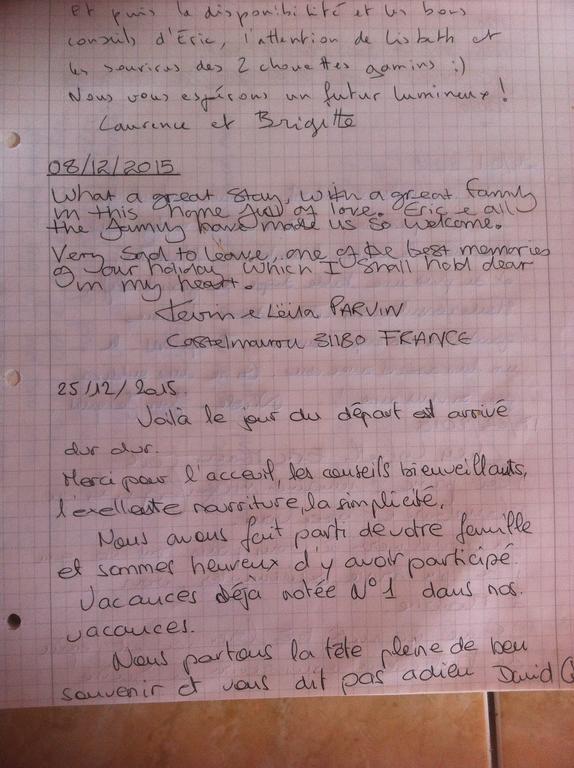 Et puis la disponibilité et les bons
conseils d'Éric, l'attention de Lisbeth et
les sourires des 2 chouettes gamins :)
Nous vous espérons un futur lumineux !
Laurence et Brigitte
08/12/2015
What a great stay, with a great family
in this home full of love. Eric e all
the family have made us so welcome.
Very sad to leave, one of the best memories
of our holiday which I shall hold dear
in my heart.
Kevin e Leïla PARVIN
Castelmaurou 31180 FRANCE
25/12/2015.
Voilà le jour du départ est arrivé
dur dur.
Merci pour l'acceuil, les conseils bienveillants,
l'exellente nourriture, la simplicité,
Nous avons fait parti de votre famille
et sommes heureux d'y avoir participé.
Vacances déjà notée N°1 dans nos
vacances.
Nous partons la tête pleine de beu
souvenir et vous dit pas adieu David